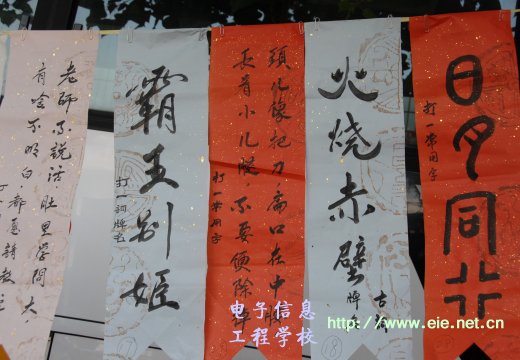 老師不説话肚里学問大
有啥不明白都意請教
霸王别姬
打一詞牌名
頭儿像把刀，扁口在中
長着小儿腿，不要便除
打一常用字
火烧赤壁
古
牌名
8
日月同
打一常用字
电子信息
工程学校
http://www.eie.net.cn